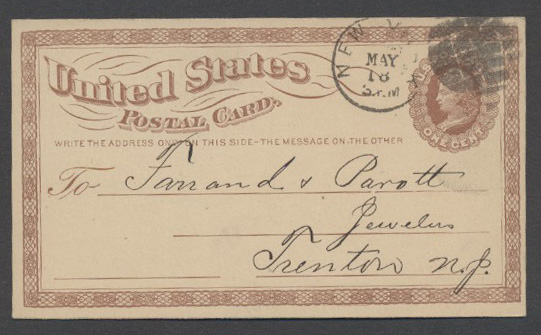 United States
POSTAL CARD.
NEW
MAY
18
ONE CENT
WRITE THE ADDRESS ONLY ON THIS SIDE-THE MESSAGE ON THE OTHER
To Farrand & Parott
Jewelers
Trenton N.J.